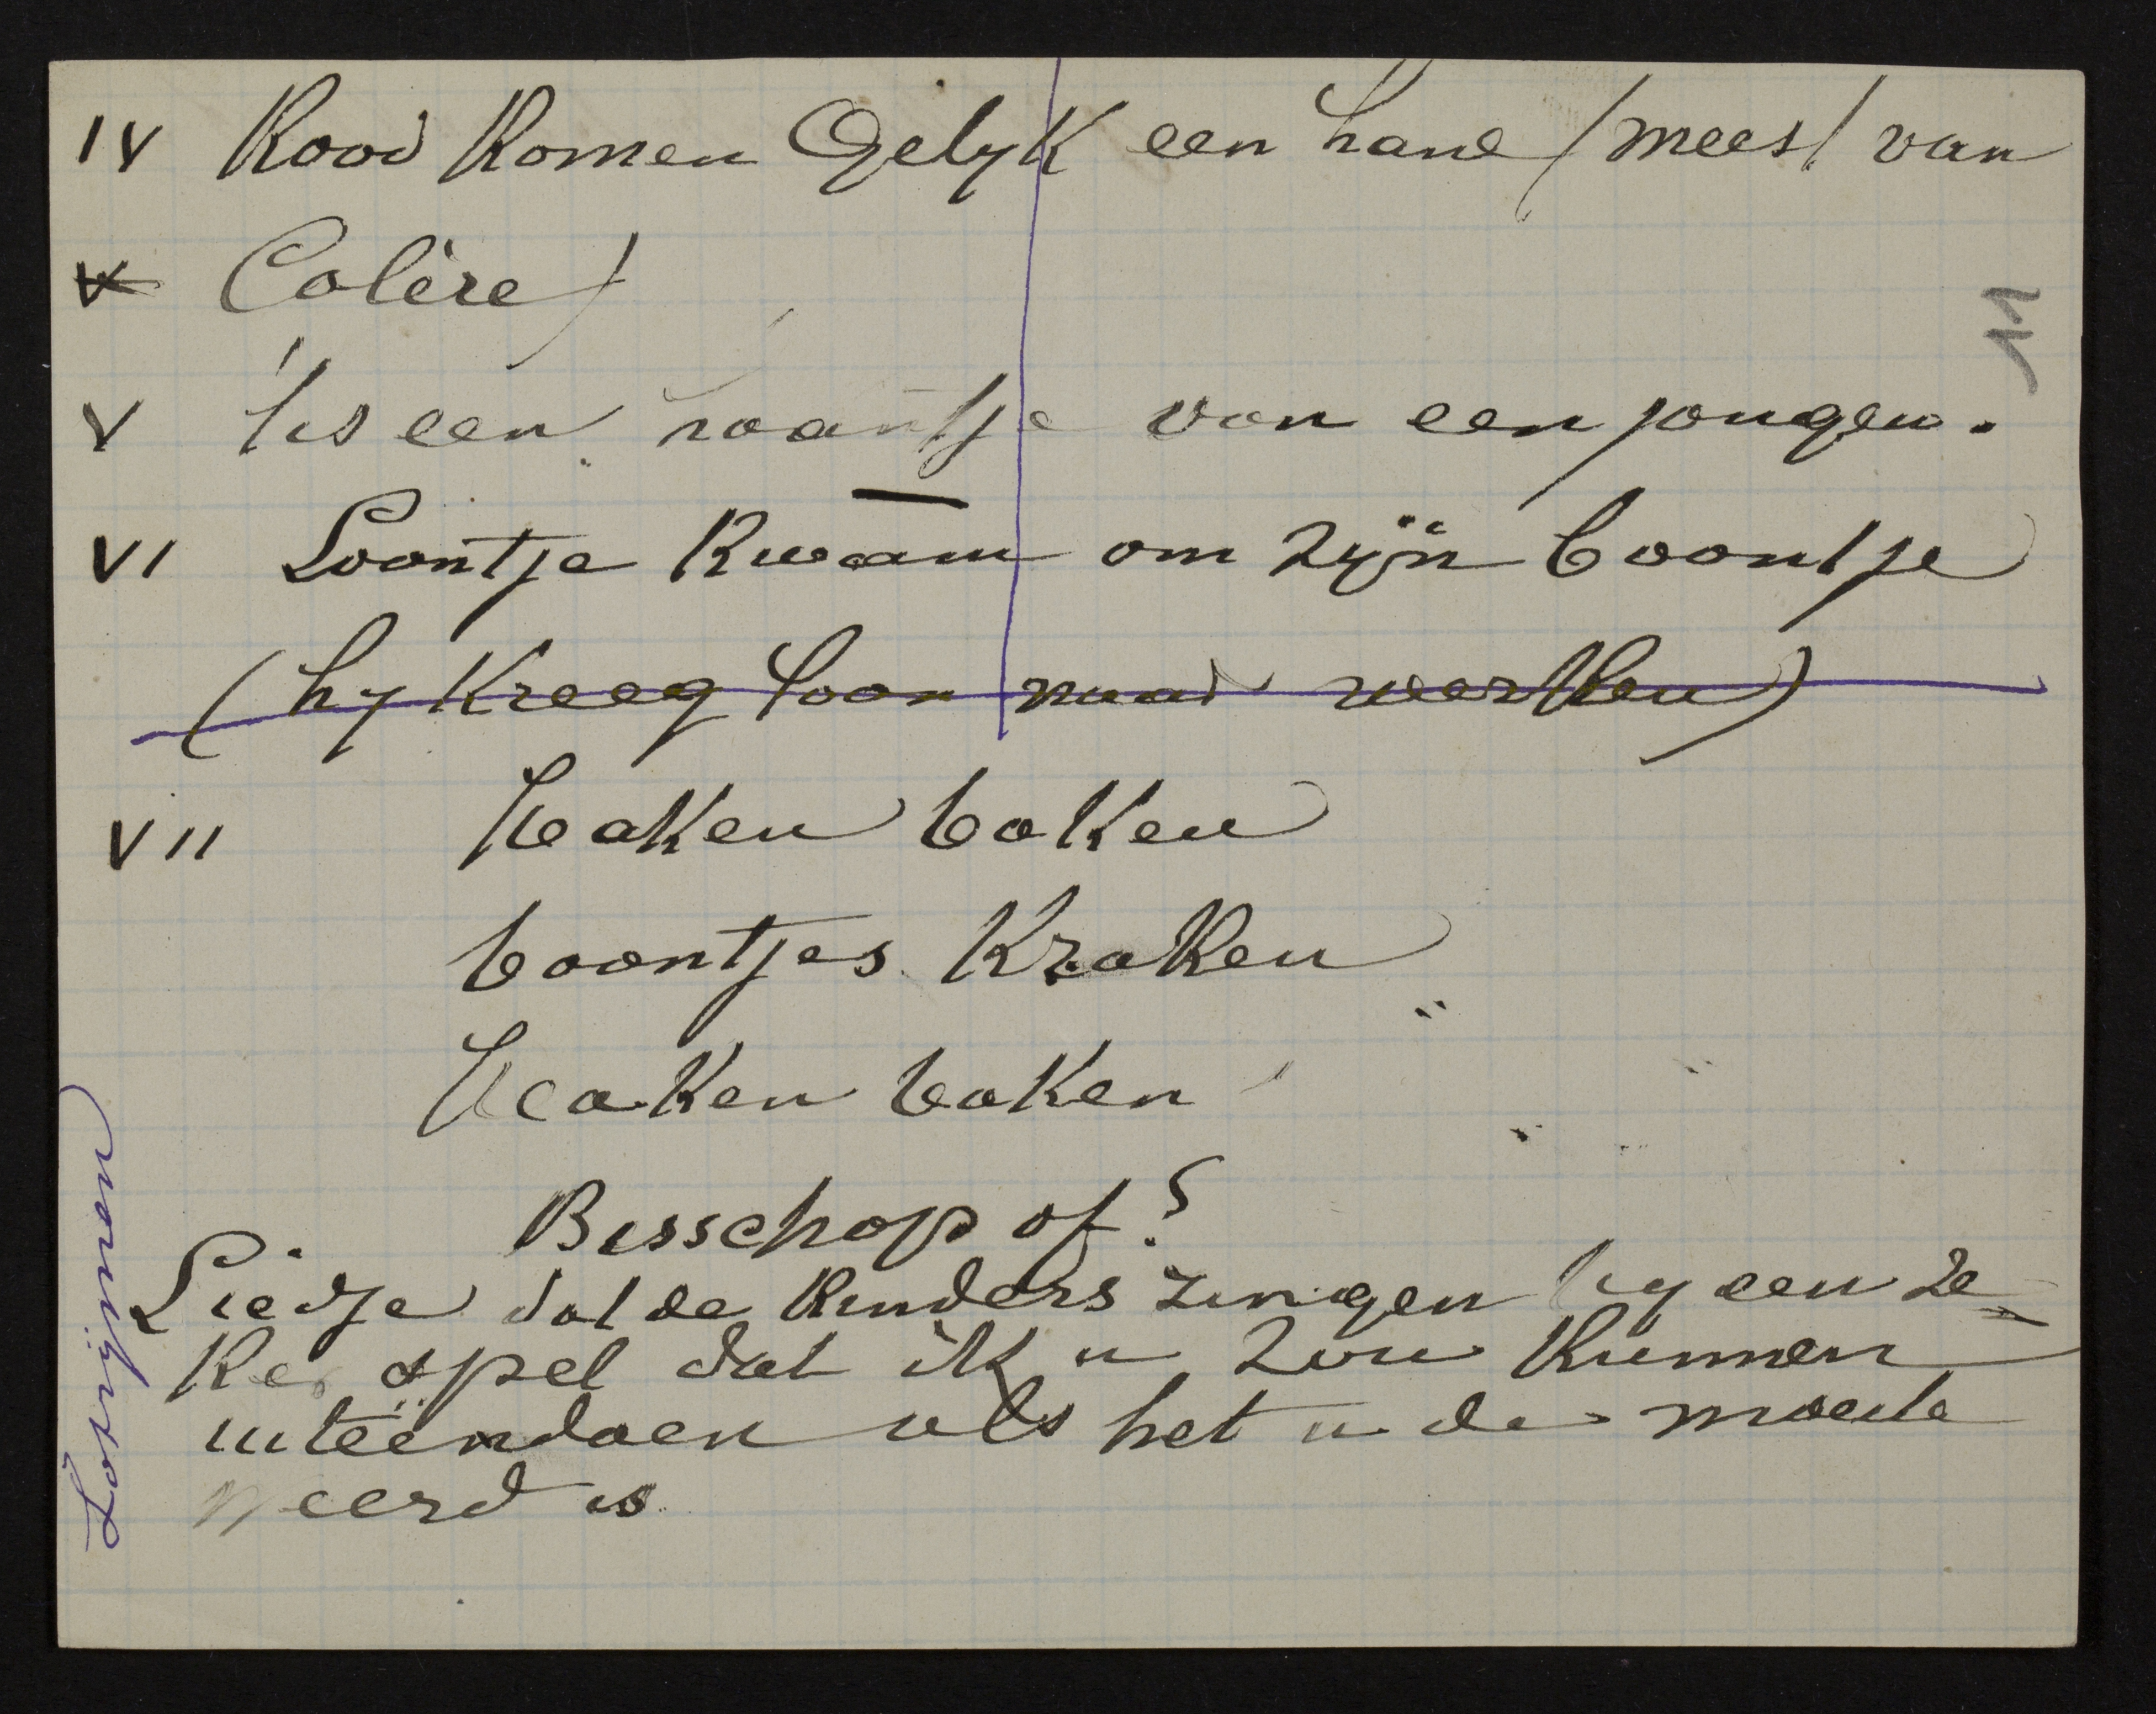 IV Rood komen Gelijk een hane (meest van
V Colère)
V 't is een haantje van een jongen.
VI Loontje kwam om zijn boontje
(hy kreeg loon naar werken)
VII Haken baken
boontjes kraken
Haken baken
Bisschop of?
Liedje dat de kinders zingen by een ze-
ker spel dat ik u zou kunnen
uiteendoen als het u de moeite
weerd is
Lotrijmen
11